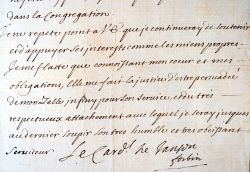 dans la Congregation.
Je ne repete point a V.E. que je continueray de soutenir
et d'appuyer ses interests comme les miens propres.
Je me flatte que connoissant mon cœur et mes
obligations, Elle me fait la justice d'estre persuadée
de mon Zele infiny pour son service, et du tres
respectueux attachement avec lequel je seray jusques
au dernier soupir son tres humble et tres obeissant
serviteur
Le Card.l de Janson
forbin